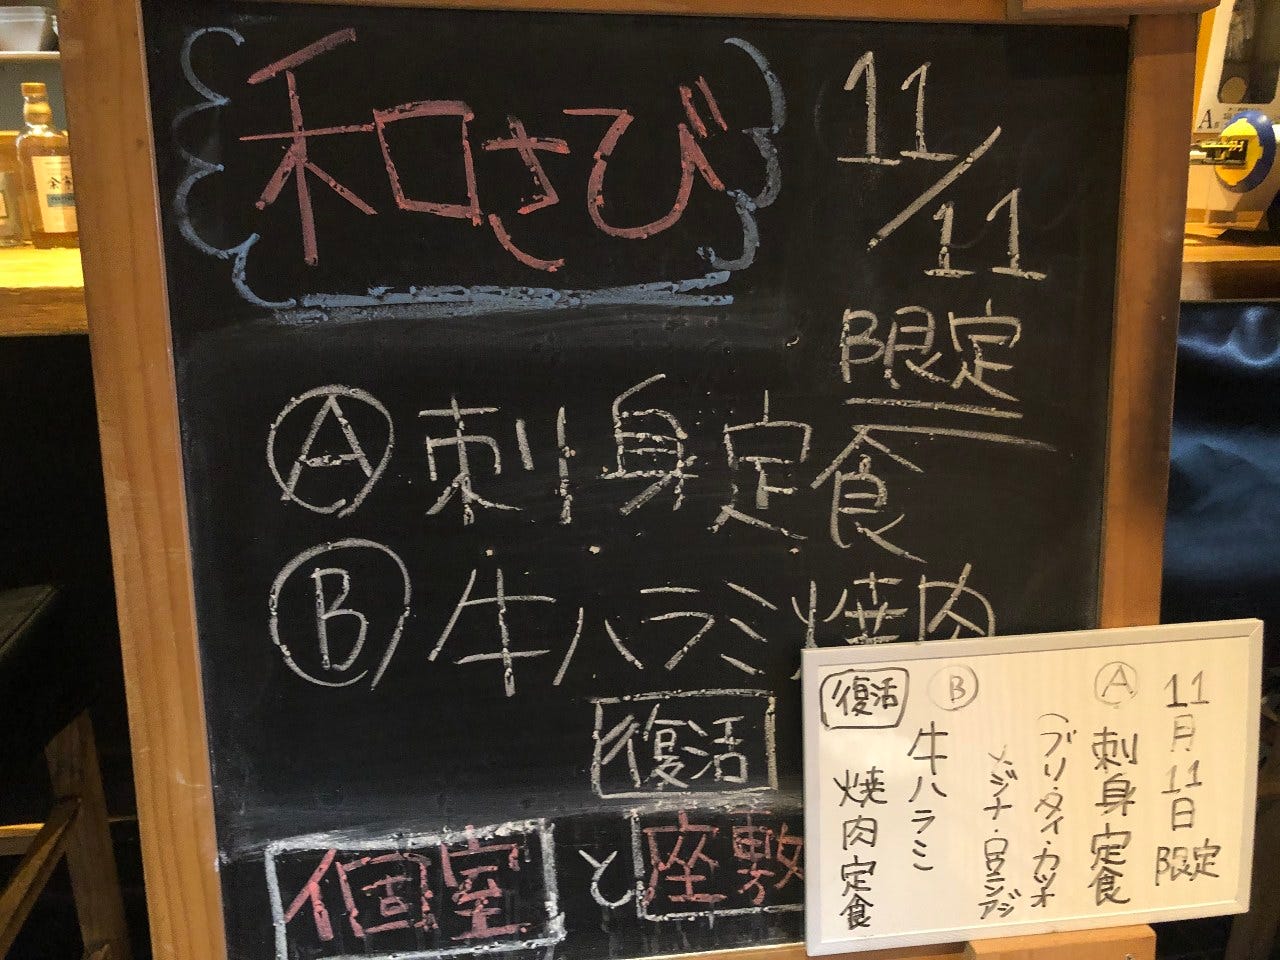 和さび
11/11
限定
Ⓐ刺身定食
Ⓑ牛ハラミ焼肉
復活
個室と座敷
11月11日限定
Ⓐ刺身定食
(ブリ・タイ・カツオ
メジナ・ロウニンアジ
Ⓑ牛ハラミ
復活 焼肉定食